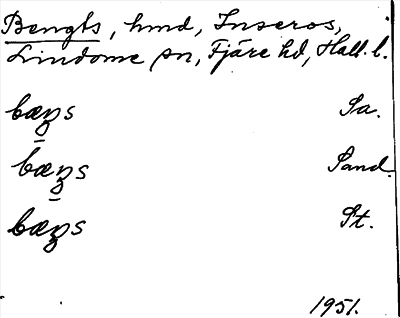 Bengts, hmd, Inseros,
Lindome sn, Fjäre hd, Hall. l.
bæŋs Sa.
bæŋs Sand.
bæŋs St.
1951.